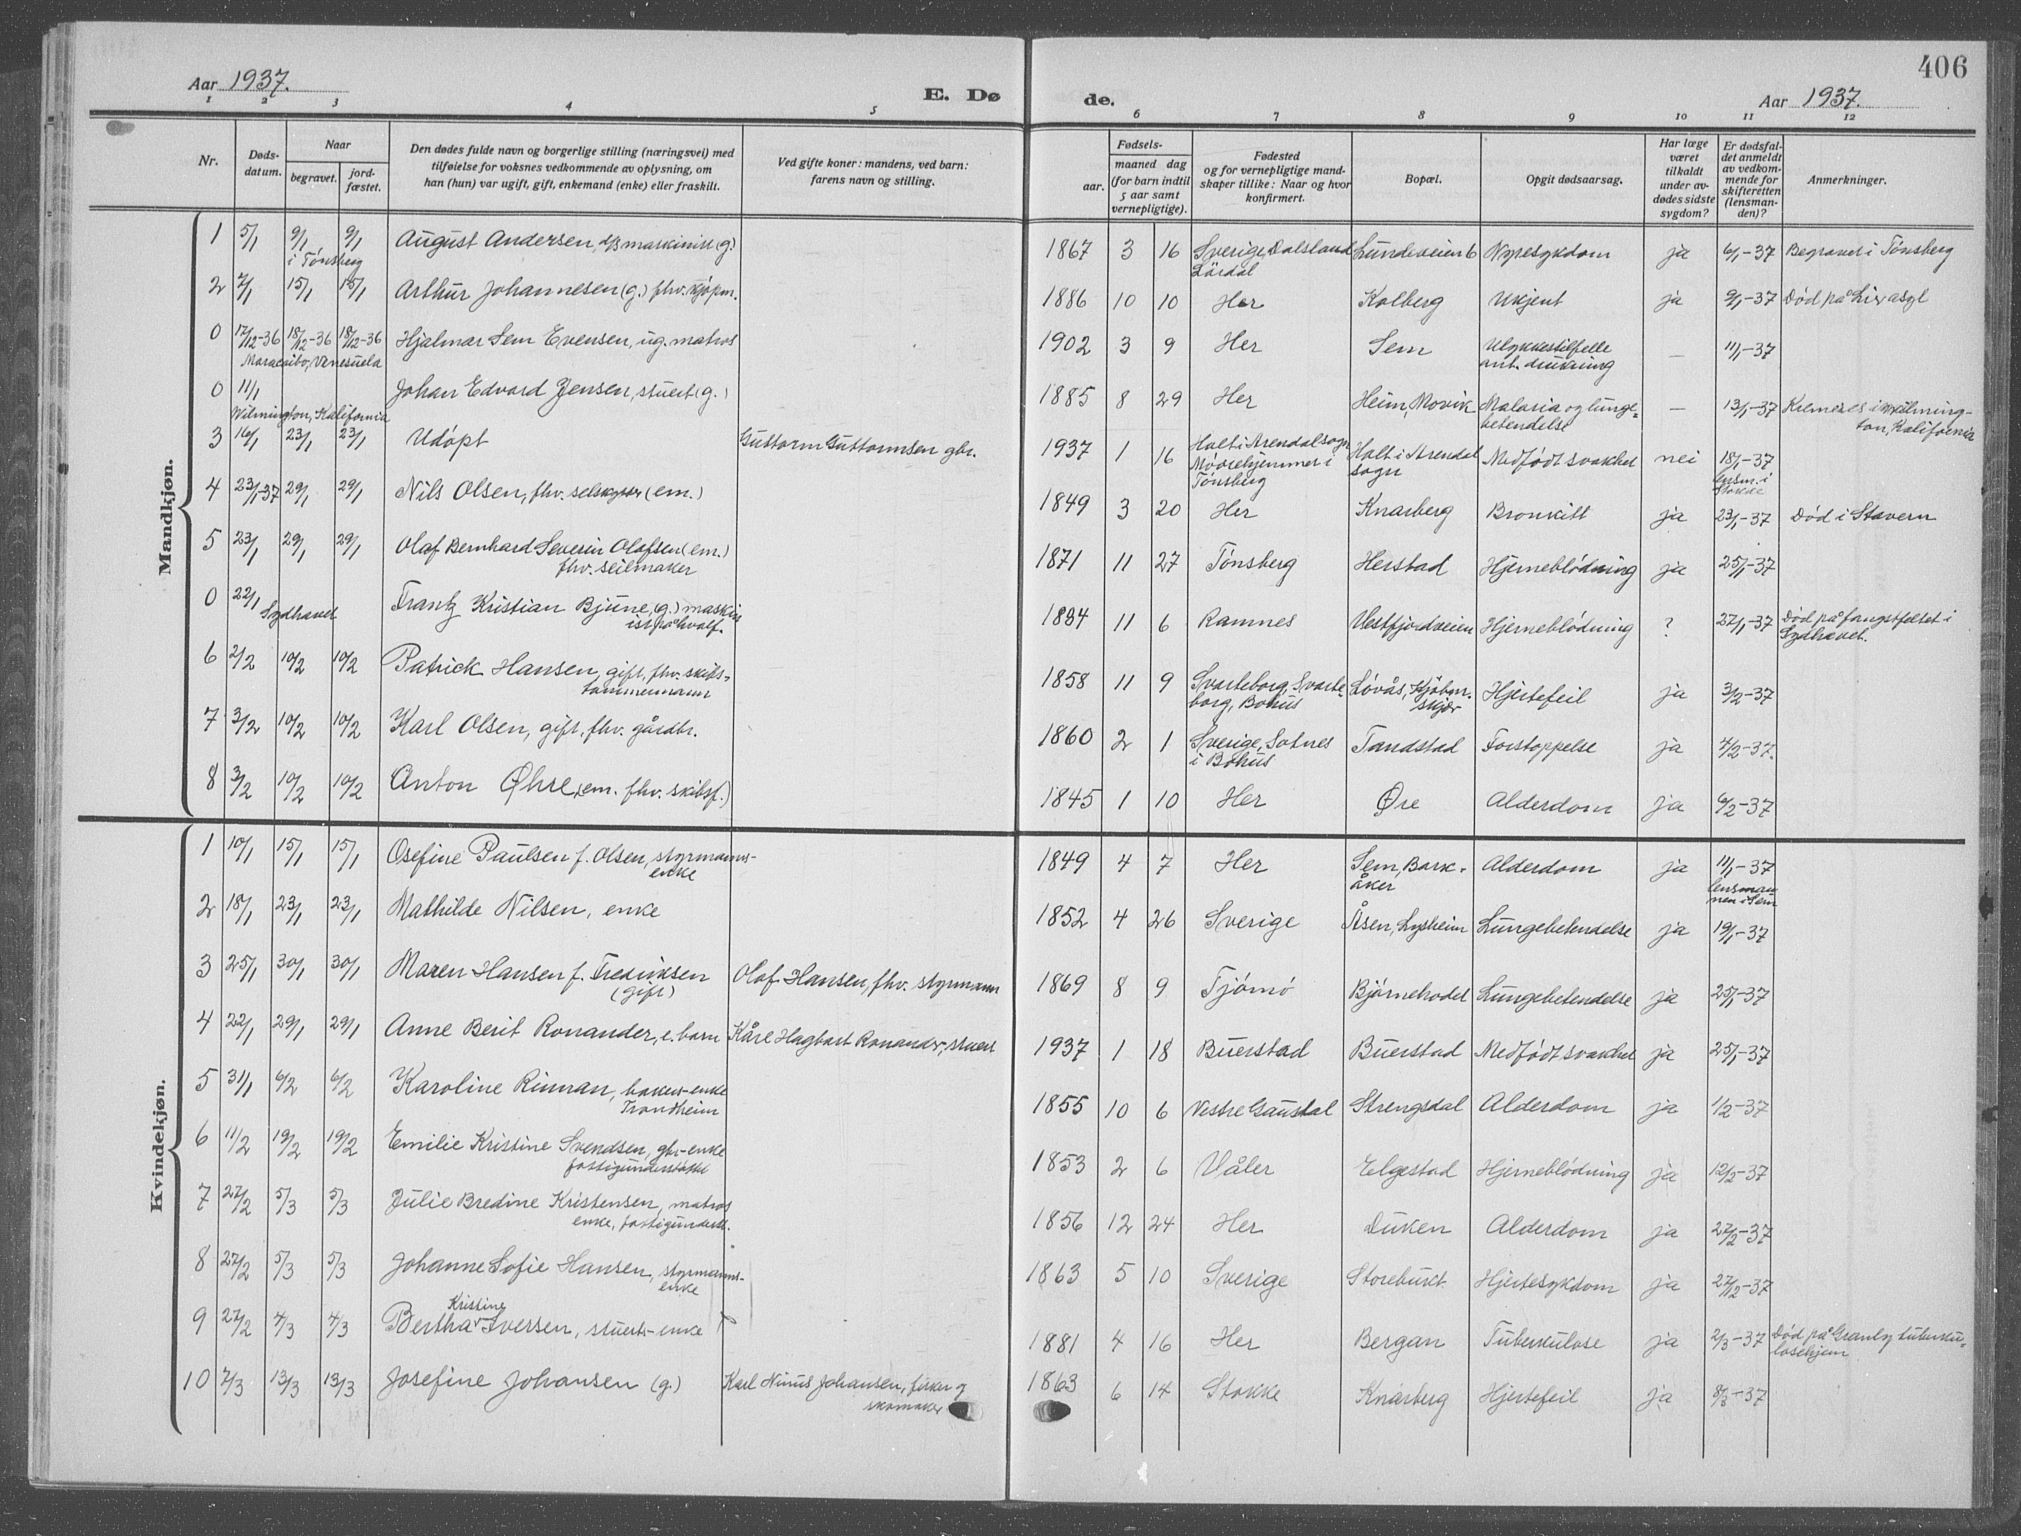 406
Aar 1937. E. Døde. Aar 1937.
1 2 3 4 5 6 7 8 9 10 11 12
Nr. Døds-datum. Naar begravet. jord-fæstet. Den dødes fulde navn og borgerlige stilling (næringsvei) med tilføielse for voksnes vedkommende av oplysning, om han (hun) var ugift, gift, enkemand (enke) eller fraskilt. Ved gifte koner: mandens, ved barn: farens navn og stilling. Fødsels- aar. maaned dag (for barn indtil 5 aar samt vernepligtige). Fødested og for vernepligtige mandskaper tillike: Naar og hvor konfirmert. Bopæl. Opgit dødsaarsag. Har læge været tilkaldt under avdødes sidste sygdom? Er dødsfaldet anmeldt av vedkommende for skifteretten (lensmanden)? Anmerkninger.
Mandkjøn.
1 5/1 9/1 9/1 i Tønsberg August Andersen, d/s maskinist (g.) 1867 3 16 Sverige, Dalsland Lördal Lundeveien 6 Nyresykdom ja 6/1-37 Begravet i Tønsberg
2 7/1 15/1 15/1 Arthur Johannesen (g.) fhv. kjøpm. 1886 10 10 Her Kolberg Ukjent ja 9/1-37 Død på Lier asyl
0 17/12-36 18/12-36 18/12-36 Maracaibo, Venesuela Hjalmar Sem Evensen, ug. matros 1902 3 9 Her Sem Ulykkestilfelle ant. drukning — 11/1-37
0 11/1 Wilmington, Kalifornia Johan Edvard Jensen, stuert (g.) 1885 8 29 Her Heim, Movik Malaria og lunge-betendelse — 13/1-37 Kremeres i Wilming-ton, Kalifornia
3 16/1 23/1 23/1 Udøpt Guttorm Guttormsen gbr. 1937 1 16 Holt i Arendal sogn Mødrehjemmet i Tønsberg Holt i Arendal sogn Medfødt svakhet nei 18/1-37 lensm. i Stokke
4 23/1-37 29/1 29/1 Nils Olsen, fhv. selskytter (em.) 1849 3 20 Her Knarberg Bronkitt ja 23/1-37 Død i Stavern
5 23/1 29/1 29/1 Olaf Bernhard Severin Olafsen (em.) fhv. seilmaker 1871 11 27 Tønsberg Herstad Hjerneblödning ja 25/1-37
0 22/1 Sydhavet Frantz Kristian Bjune, (g.) maskin ist på hvalf. 1884 11 6 Ramnes Vestfjordveien Hjerneblödning ? 27/1-37 Død på fangstfeltet i Sydhavet.
6 2/2 10/2 10/2 Patrick Hansen, gift, fhv. skibs-tømmermann 1858 11 9 Svarteborg, Svarte-borg, Bohus Lövås, Kjøbm. skjær Hjertefeil ja 3/2-37
7 3/2 10/2 10/2 Karl Olsen, gift, fhv. gårdbr. 1860 2 1 Sverige, Sotnes i Bohus Tandstad Forstoppelse ja 4/2-37.
8 3/2 10/2 10/2 Anton Øhre, (em. fhv. skibsf.) 1845 1 10 Her Øre Alderdom ja 6/2-37
Kvindekjøn.
1 10/1 15/1 15/1 Osefine Paulsen f. Olsen, styrmanns-enke 1849 4 7 Her Sem, Bark-åker Alderdom ja 11/1-37 lensman nen i Sem
2 18/1 23/1 23/1 Mathilde Nilsen, enke 1852 4 26 Sverige Åsen, Lysheim Lungebetendelse ja 19/1-37
3 25/1 30/1 30/1 Maren Hansen f. Fredriksen (gift) Olaf Hansen, fhv. styrmann 1869 8 9 Tjömö Bjørnebodet Lungebetendelse ja 25/1-37
4 22/1 29/1 29/1 Anne Berit Ronander, e. barn Kåre Hagbart Ronander, stuert 1937 1 18 Buerstad Buerstad Medfødt svakhet ja 25/1-37
5 31/1 6/2 6/2 Karoline Rinnan, bakers-enke Trondheim 1855 10 6 Vestre Gausdal Strengsdal Alderdom ja 1/2-37
6 11/2 19/2 19/2 Emilie Kristine Svendsen, gbr-enke fattigunderstøttet 1853 2 6 Våler Elgestad Hjerneblödning ja 12/2-37
7 27/2 5/3 5/3 Julie Bredine Kristensen, matros enke, fattigunderst. 1856 12 24 Her Duken Alderdom ja 27/2-37
8 27/2 5/3 5/3 Johanne Sofie Hansen, styrmanns-enke 1863 5 10 Sverige Storeburet Hjertesykdom ja 27/2-37
9 27/2 4/3 4/3 Bertha Kristine Iversen, stuerts-enke 1881 4 16 Her Bergan Tuberkulose ja 2/3-37 Død på Granly tuberku-losehjem
10 7/3 13/3 13/3 Josefine Johansen (g.) Karl Ninus Johansen, fisker og skomaker 1863 6 14 Stokke Knarberg Hjertefeil ja 8/3-37